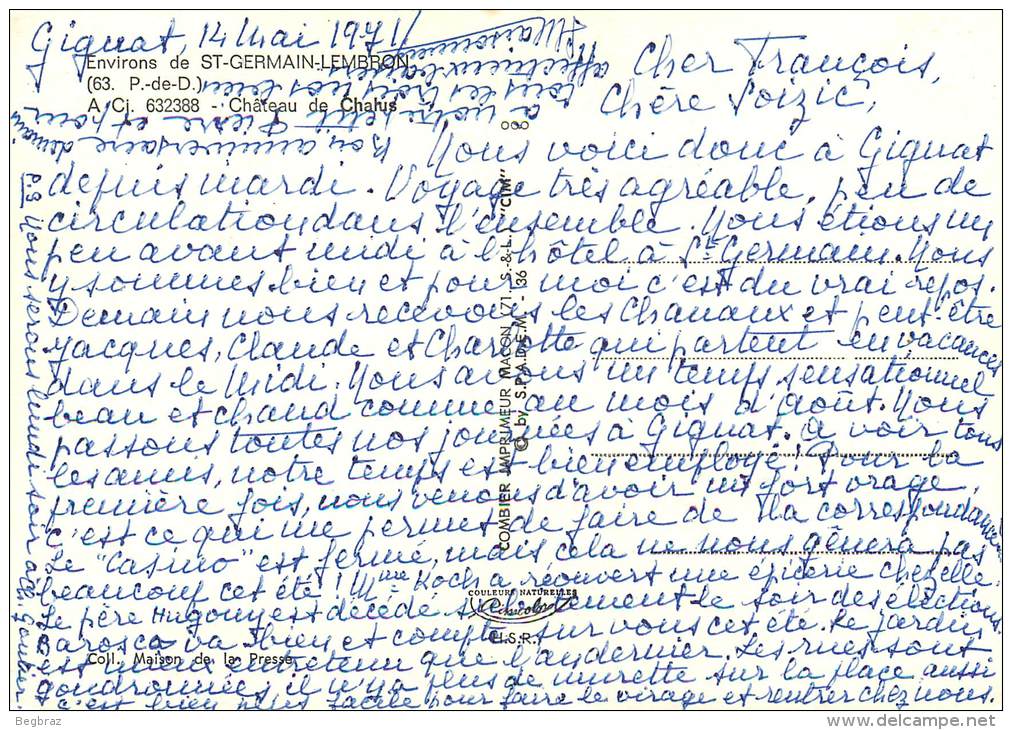 Gignat, 14 Mai 1971
Environs de ST-GERMAIN-LEMBRON
(63. P.-de-D.)
A Cj. 632388 - Château de Chalus
Cher François,
Chère Soizic,
Nous voici donc à Gignat
depuis mardi. Voyage très agréable, peu de
circulation dans l'ensemble. Nous étions un
peu avant midi à l'hôtel à St Germain. Nous
y sommes bien et pour moi c'est du vrai repos.
Demain nous recevons les Chanaux et peut-être
Jacques, Claude et Charlotte qui partent en vacances
dans le Midi. Nous avons un temps sensationnel
beau et chaud comme au mois d'août. Nous
passons toutes nos journées à Gignat. A voir tous
les amis, notre temps est bien employé! Pour la
première fois, nous venons d'avoir un fort orage,
c'est ce qui me permet de faire de la correspondance
Le "Casino" est fermé, mais cela ne nous gênera pas
beaucoup cet été! Mme Koch a réouvert une épicerie chez elle.
Le père Hugony est décédé le soir des élections.
Carosca va bien et compte sur vous cet été. Le jardin
est mieux entretenu que l'an dernier. Les rues sont
goudronnées, il n'y a plus de murette sur la place aussi
c'est bien plus facile pour faire le virage et rentrer chez nous.
Bon anniversaire demain
à notre petit Pierre et pour
tous les trois nos bien
affectueux baisers
P.S Nous serons lundi soir à
COMBIER IMPRIMEUR MACON (71. S.-&-L.) "CIM"
© by S.P.A.D.E.M. - 136
COULEURS NATURELLES
H.S.R.
Coll. Maison de la Presse
Begbraz
www.delcampe.net